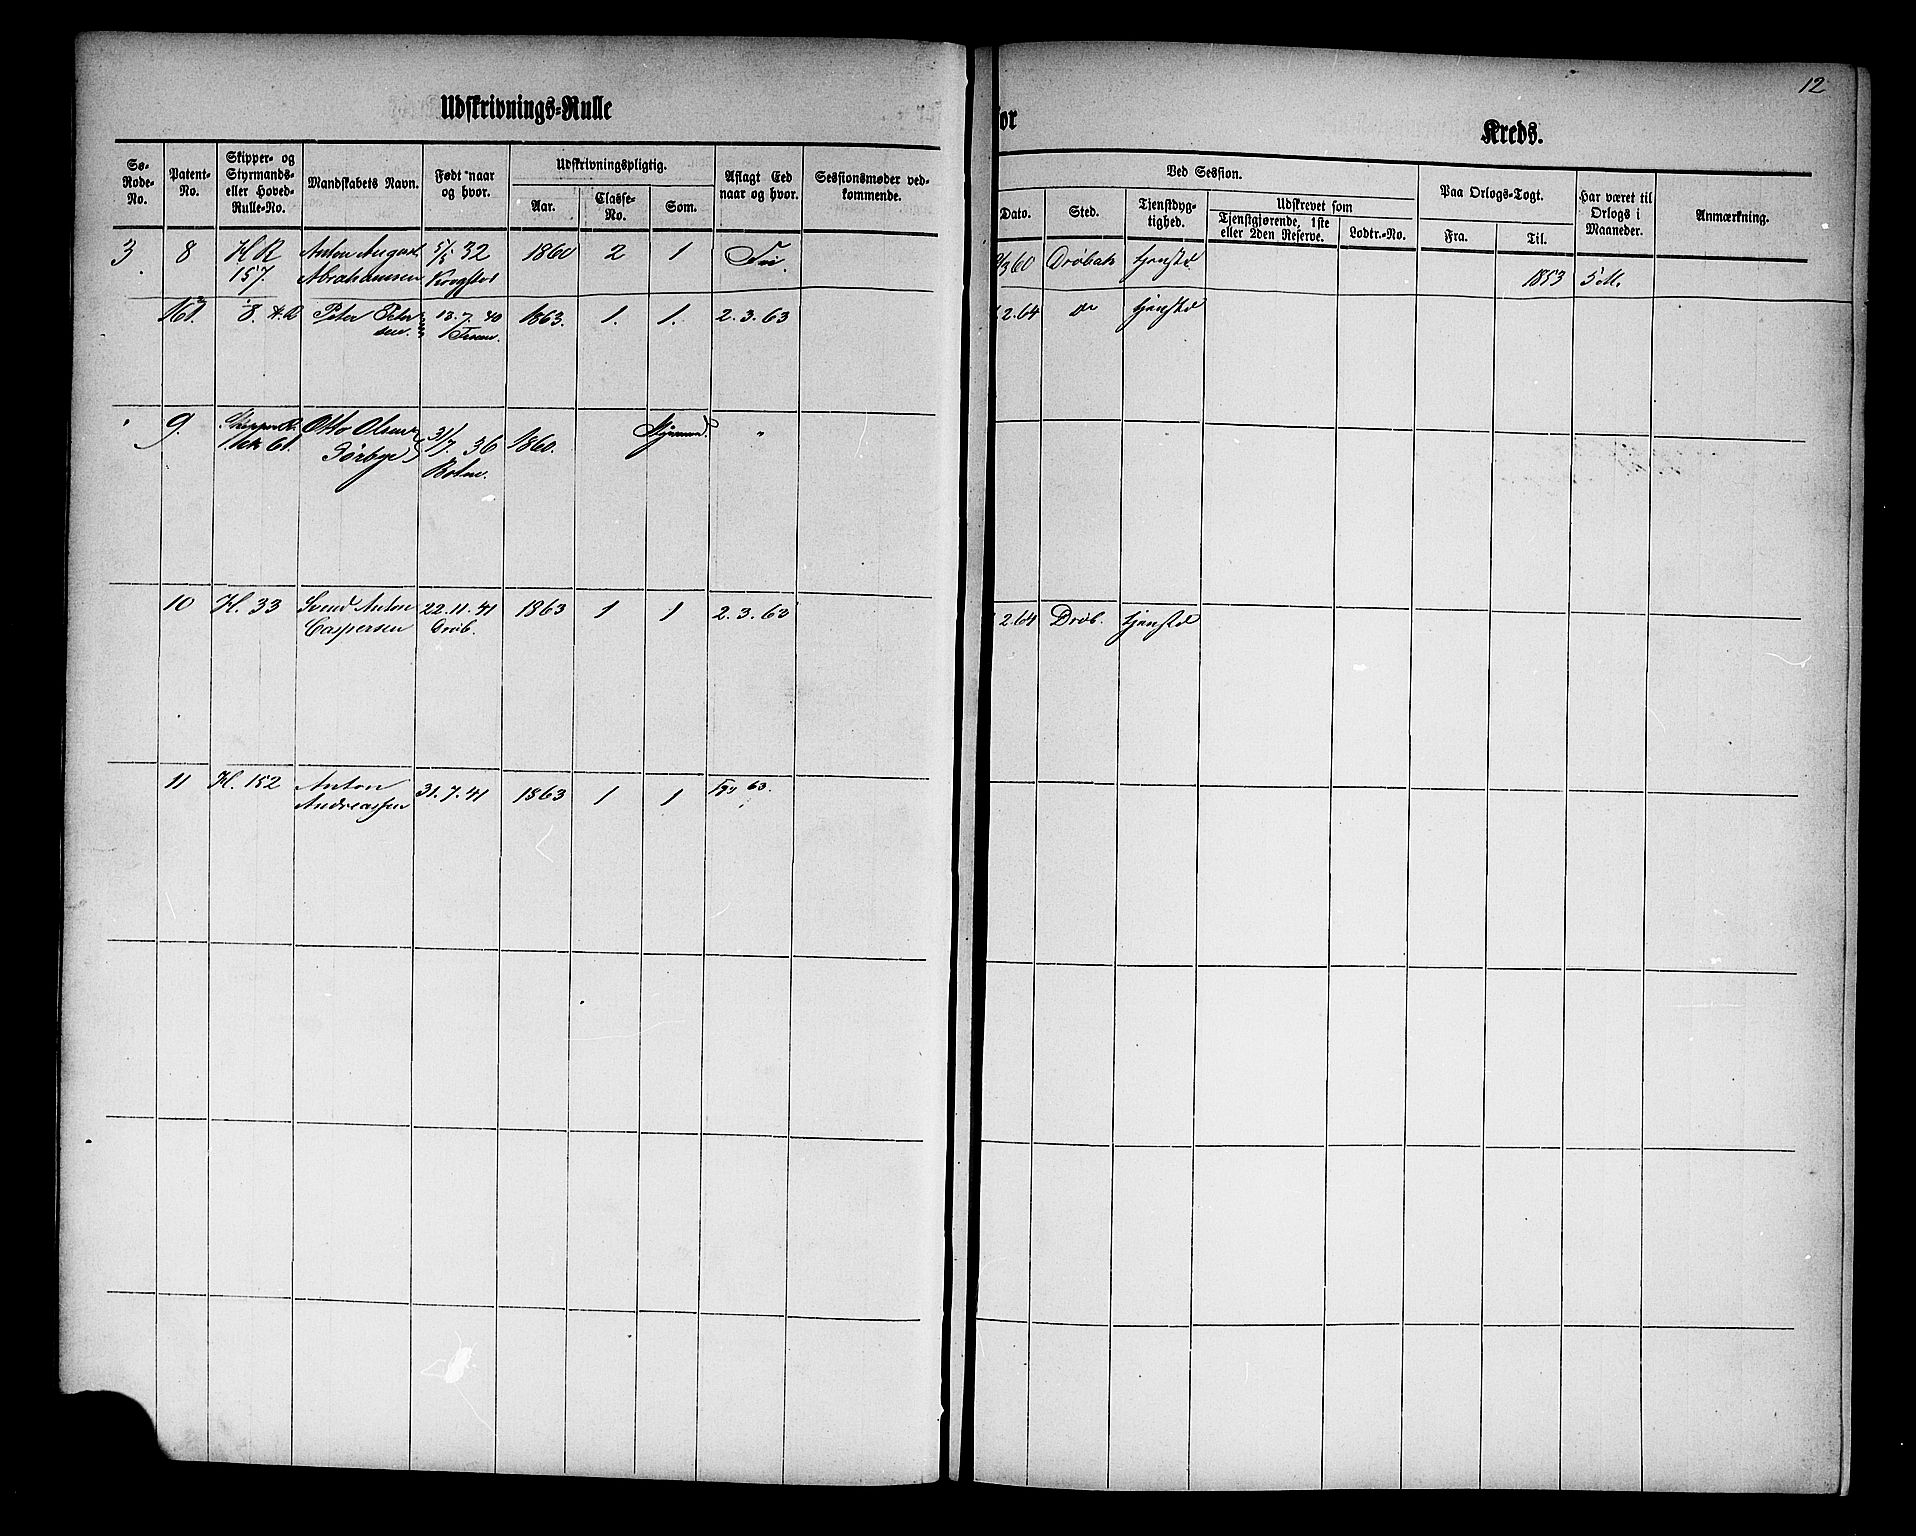 12
Udskrivnings-Rulle
for
Kreds.
Sø-Rode-No.
Patent-No.
Skipper- og Styrmands- eller Hoved-Rulle-No.
Mandskabets Navn.
Født naar og hvor.
Udskrivningspligtig.
Aar.
Classe-No.
Som.
Aflagt Eed naar og hvor.
Sessionsmøder vedkommende.
Ved Session.
Dato.
Sted.
Tjenstdygtighed.
Udskrevet som
Tjenstgjørende, 1ste eller 2den Reserve.
Lodtr.-No.
Paa Orlogs-Togt.
Fra.
Til.
Har været til Orlogs i Maaneder.
Anmærkning.
3 8 H R Anton August 5/5 32 1860 2 1 3 60 Drøbak tjenstd
157. Abrahamsen Krogstad 1853 5 M.
8. H.R Peter Petersen 13.7.40 1863. 1. 1. 2.3.63 2.64 Do tjenstd
9. Otto Olsen 31/7. 36 1860. Styrmand "
61. Sørbye
10 H. 33 Svend Anton 22.11.41 1863 1 1 2.3.63 2.64 Drøb. tjenstd
Caspersen Drøb.
11 H. 152 Anton 31.7.41 1863 1 1 63.
Andreassen